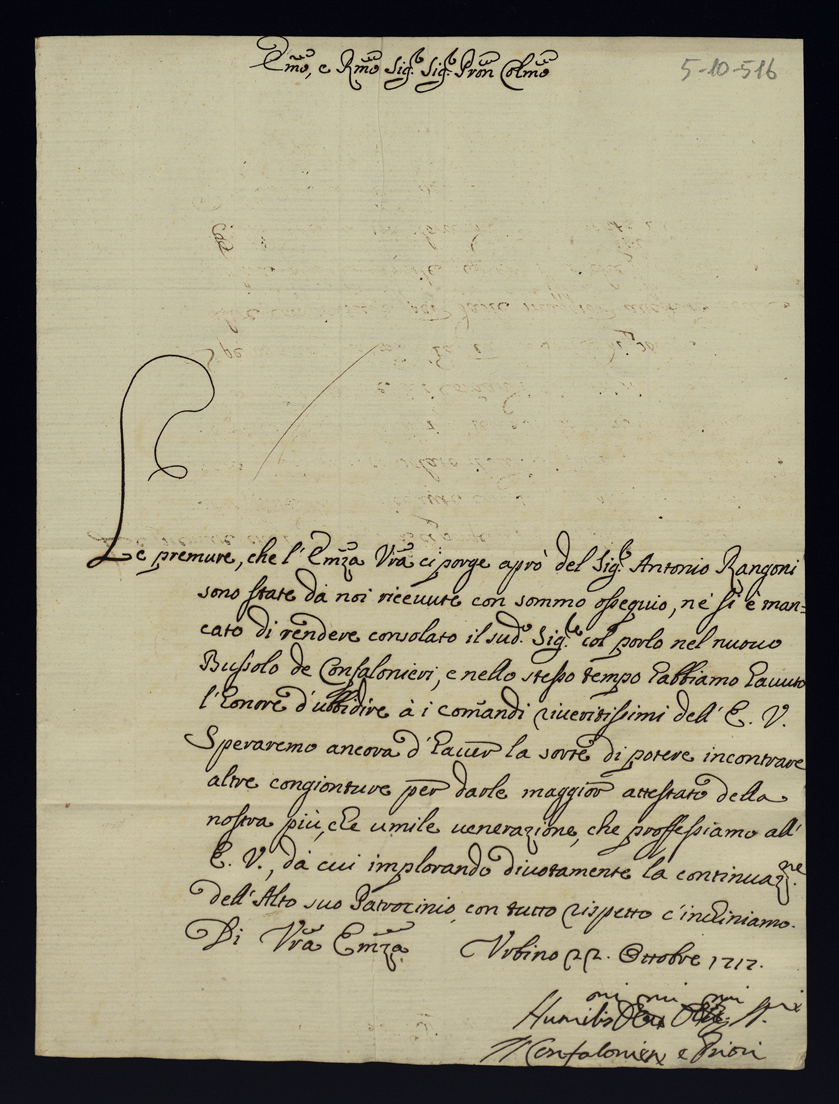 Emo, e Rmo Sigr Sigr Pron Colmo
5-10-516
Le premure, che l'Emza Vra ci porge à prò del Sigr Antonio Rangoni
sono state da noi riceuute con sommo ossequio, nè si è man=
cato di rendere consolato il sudo. Sigre col porlo nel nuouo
Bussolo de Confalonieri, e nello stesso tempo habbiamo hauuto
l'honore d'ubbidire à i comandi riueritissimi dell'E. V.
Speraremo ancora d'hauer la sorte di potere incontrare
altre congionture per darle maggior attestato della
nostra più, che umile uenerazione, che proffessiamo all'
E. V., da cui implorando diuotamente la continuazne
dell'Alto suo Patrocinio, con tutto rispetto c'inchiniamo.
Di Vra Emza Vrbino 22. Ottobre 1717.
Humilis
Il Confaloniere e Priori